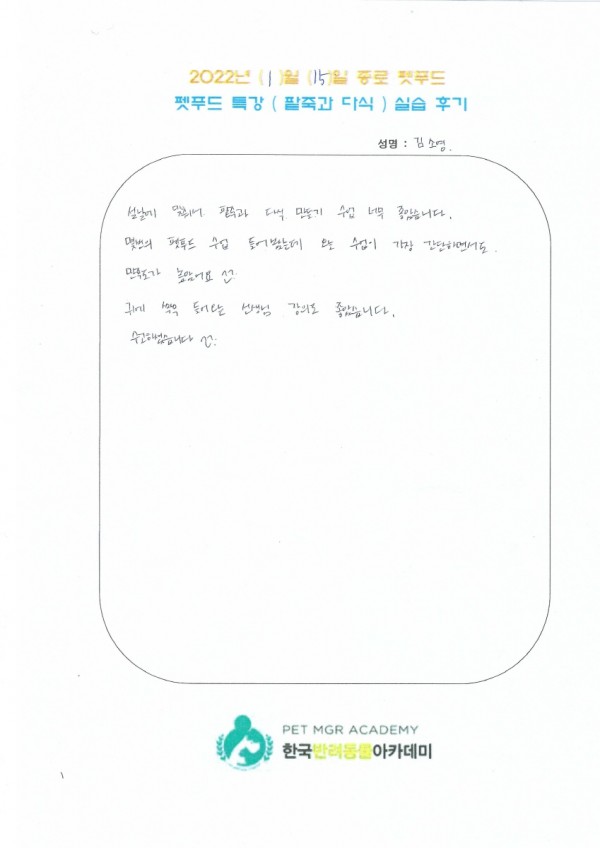 2022년 (1)월 (15)일 종로 펫푸드
펫푸드 특강 ( 팥죽과 다식 ) 실습 후기
성명 : 김소영.
설날에 맞춰서 팥죽과 다식 만들기 수업 너무 좋았습니다.
몇번의 펫푸드 수업 들어봤는데 오늘 수업이 가장 간단하면서도
만족도가 높았어요 ^^
귀에 쏙쏙 들어오는 선생님 강의도 좋았습니다.
수고하셨습니다 ^^
PET MGR ACADEMY
한국반려동물아카데미